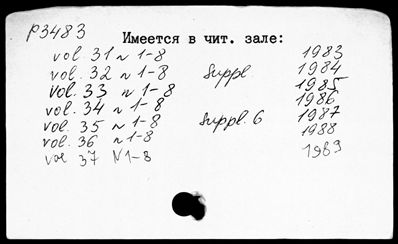 P3483
Имеется в чит. зале:
vol. 31 N 1-8 1983
vol. 32 N 1-8 Suppl. 1984
vol. 33 N 1-8 1985
vol. 34 N 1-8 1986
vol. 35 N 1-8 Suppl. 6 1987
vol. 36 N 1-8 1988
vol 37 N 1-8 1989